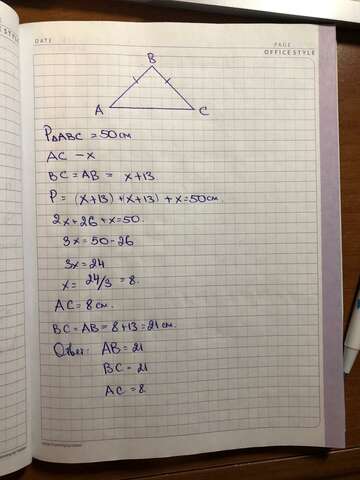 DATE
PAGE
OFFICE STYLE
B
A
C
P△ABC = 50 см
AC - x
BC = AB = x+13
P = (x+13) + (x+13) + x = 50 см.
2x+26+x=50.
3x = 50-26
3x = 24
x = 24/3 = 8.
AC = 8 см.
BC = AB = 8+13 = 21 см.
Ответ: AB = 21
BC = 21
AC = 8